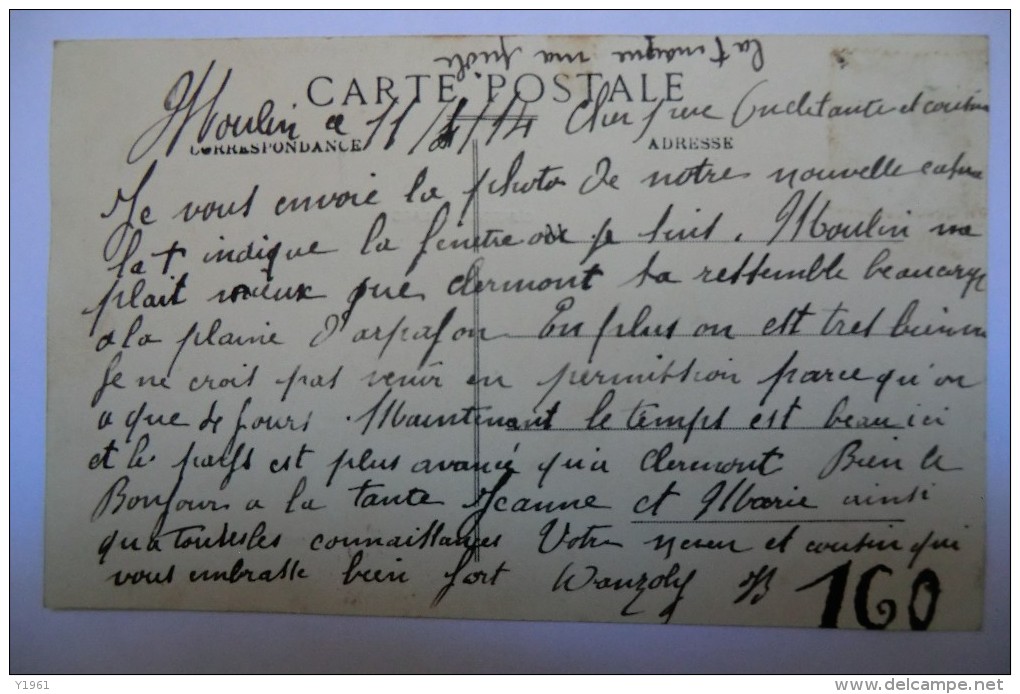 la + indique ma piole
CARTE POSTALE
Moulin a 11/4/14 Cher frere Oncle tante et cousin
CORRESPONDANCE ADRESSE
Je vous envoie la photo de notre nouvelle
la + indique la fenetre ou je suis. Moulin ma
plait mieux que clermont sa ressemble beaucoup
a la plaine d'arpajon En plus on est tres bien
Je ne crois pas venir en permission parce qu'on
a que de jours. Maintenant le temps est beau ici
et le pays est plus avancé qu'a clermont Bien le
Bonjour a la tante Jeanne et Marie ainsi
qu'a toutes les connaissances Votre neveu et cousin qui
vous embrasse bien fort
160
Y1961
delcampe.net